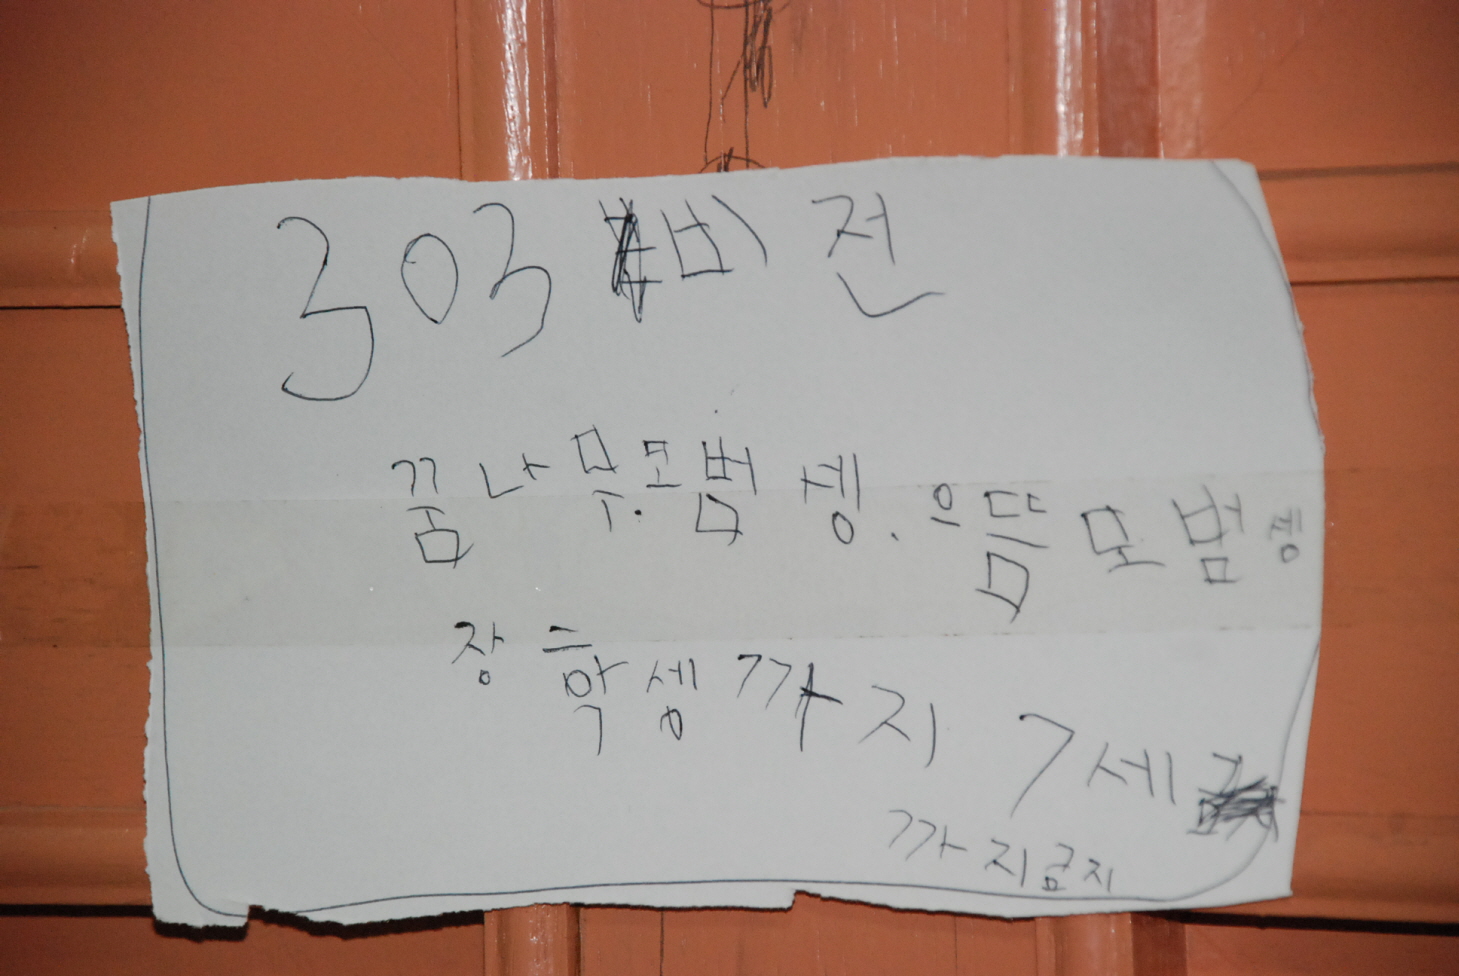 303 비전
꿈나무모범셍.으뜸모범셍
장학셍까지 7세
까지금지